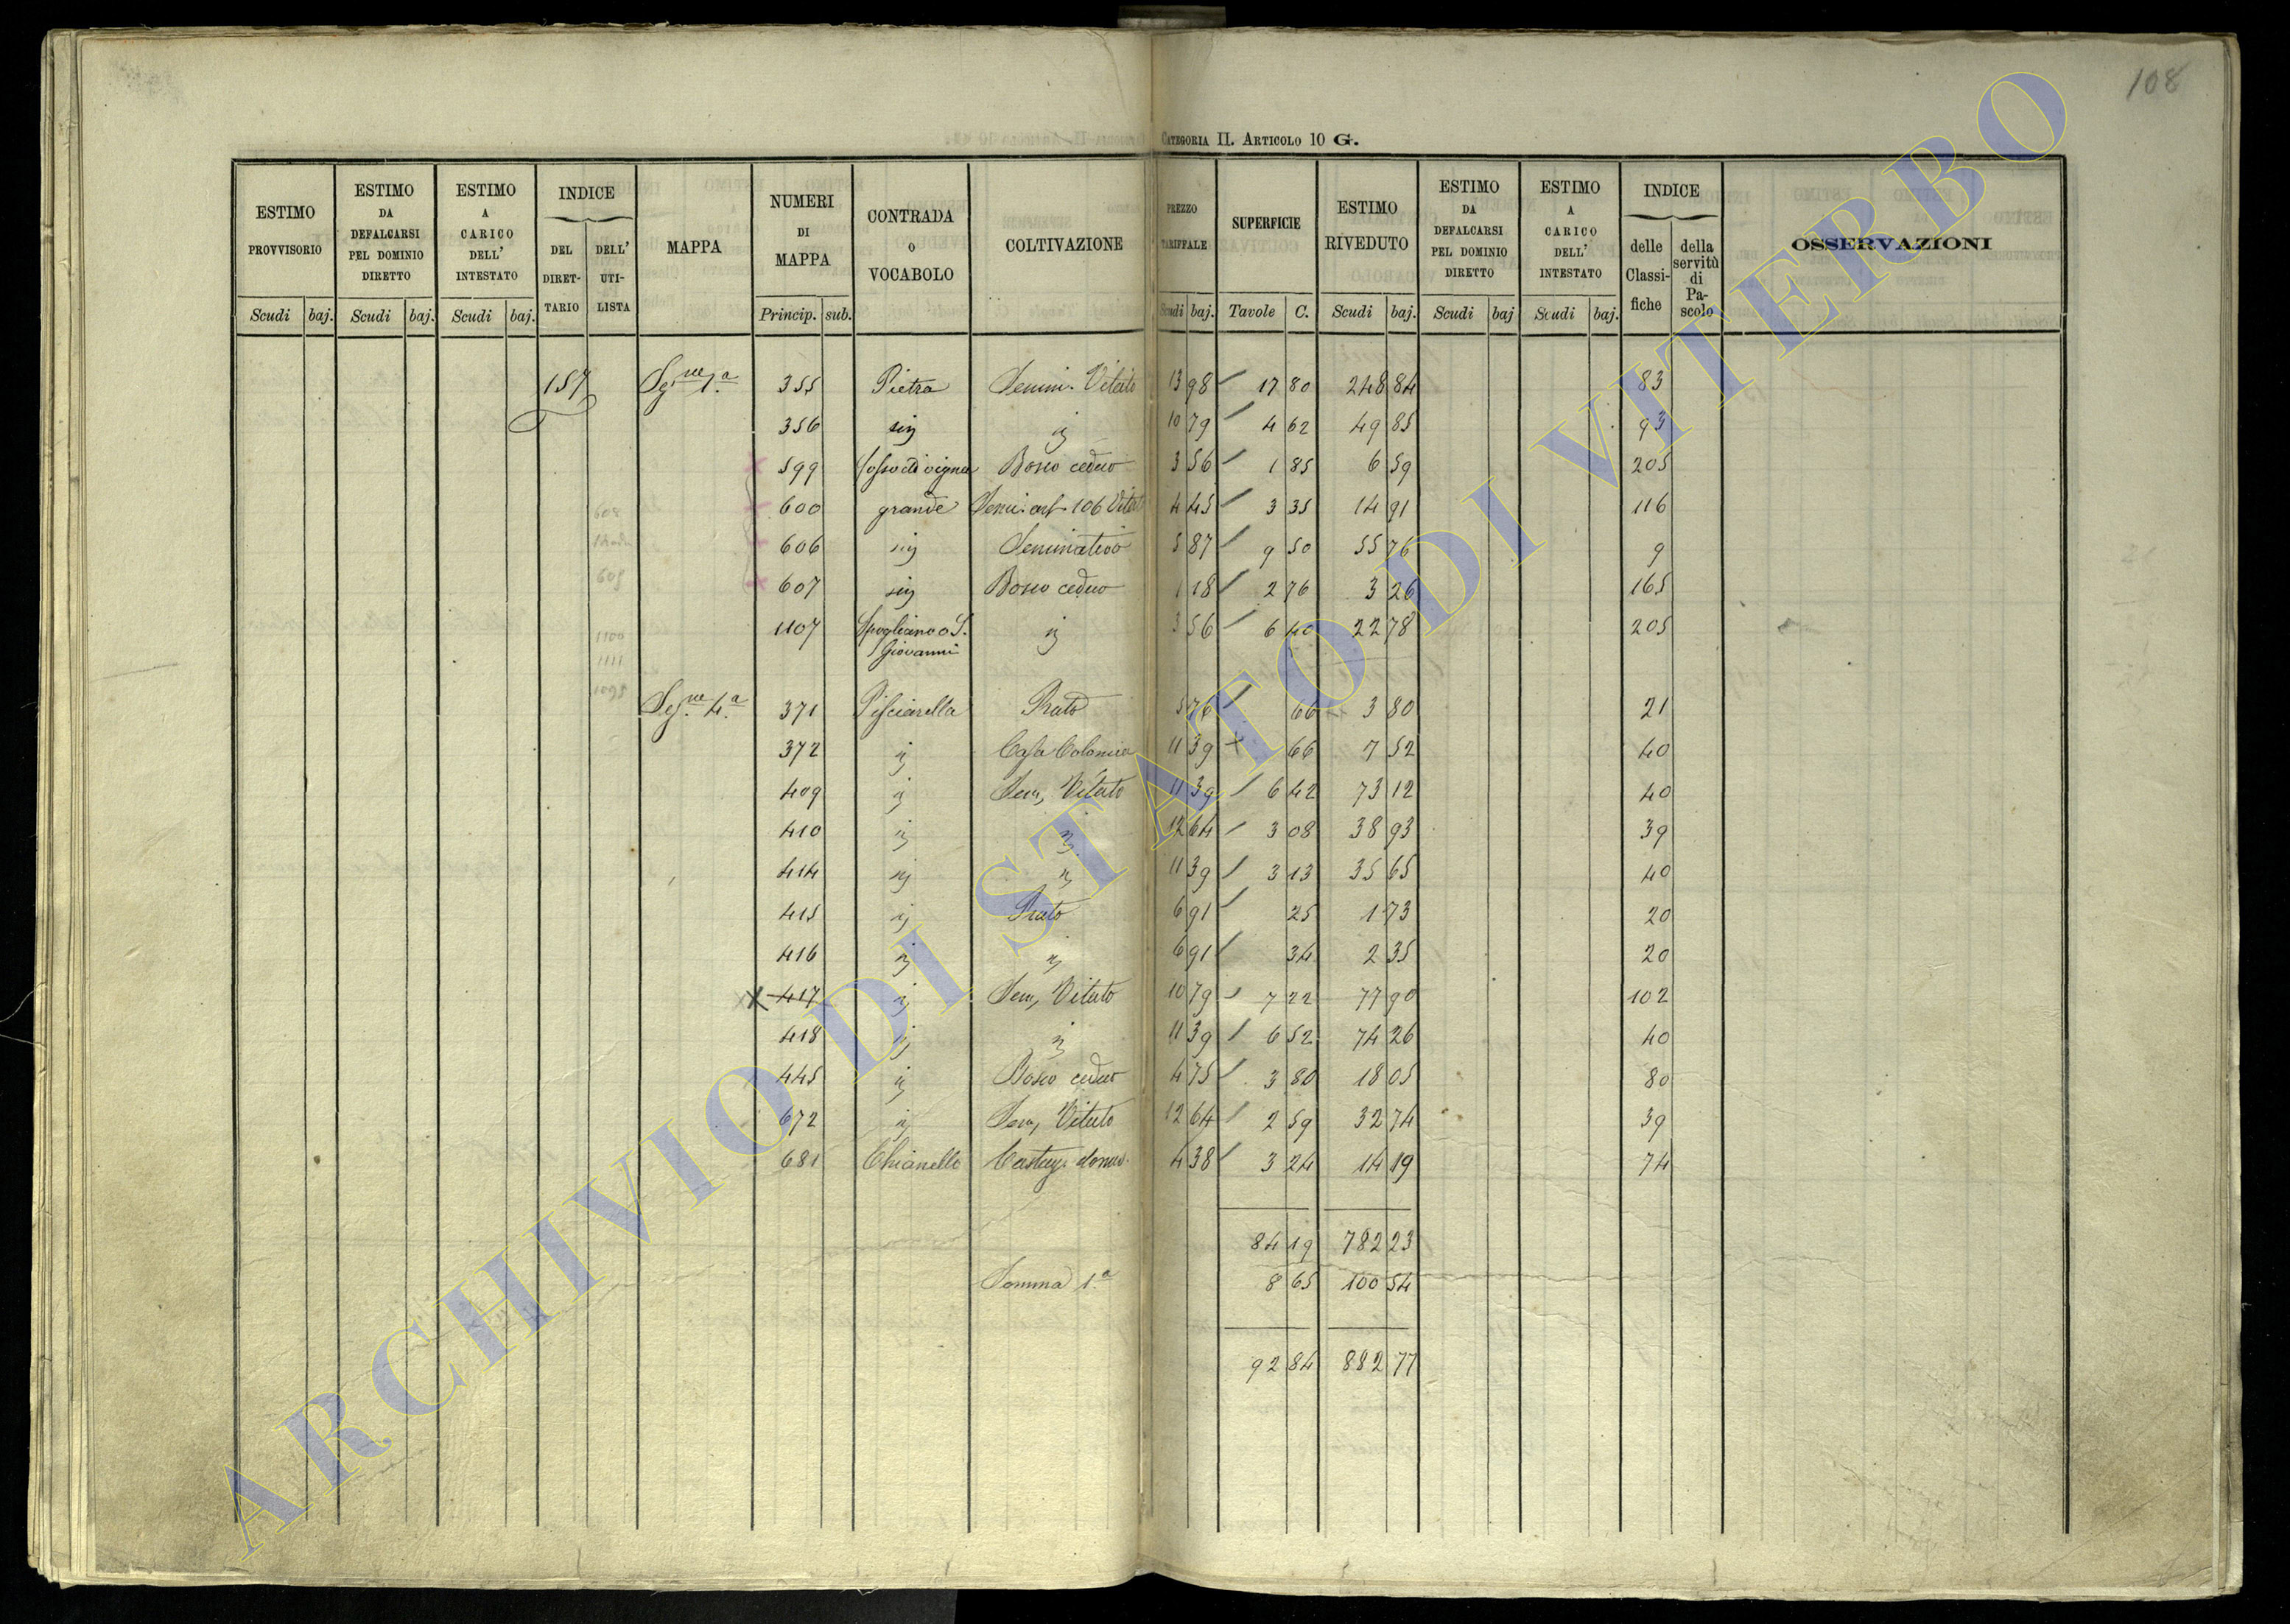 108
CATEGORIA II. ARTICOLO 10 G.
ESTIMO PROVVISORIO Scudi baj.
ESTIMO DA DEFALCARSI PEL DOMINIO DIRETTO Scudi baj.
ESTIMO A CARICO DELL' INTESTATO Scudi baj.
INDICE DEL DIRETTARIO DELL' UTILISTA
MAPPA
NUMERI DI MAPPA Princip. sub.
CONTRADA O VOCABOLO
COLTIVAZIONE
PREZZO TARIFFALE Scudi baj.
SUPERFICIE Tavole C.
ESTIMO RIVEDUTO Scudi baj.
ESTIMO DA DEFALCARSI PEL DOMINIO DIRETTO Scudi baj
ESTIMO A CARICO DELL' INTESTATO Scudi baj.
INDICE delle Classifiche della servitù di Pascolo
OSSERVAZIONI
157 Sez.ne 1.a 355 Pietra Semin. Vitato 13 98 17 80 248 84 83
356 10 79 4 62 49 85 93
599 Fosso di vigna Bosco ceduo 3 56 1 85 6 59 205
600 grande 106 4 45 3 35 14 91 116
606 Seminativo 5 87 9 50 55 76 9
607 Bosco ceduo 1 18 2 76 3 26 165
608
609
1107 Spogliano o S. 3 56 6 40 22 78 205
Giovanni
1100
1111
Sez.ne 4.a 371 Pisciarella Prato 5 76 66 3 80 21
372 Casa Colonica 11 39 66 7 52 40
409 Sem, Vitato 11 39 6 42 73 12 40
410 12 64 3 08 38 93 39
414 11 39 3 13 35 65 40
415 Prato 6 91 25 1 73 20
416 6 91 34 2 35 20
417 Sem, Vitato 10 79 7 22 77 90 102
418 11 39 6 52 74 26 40
445 Bosco ceduo 4 75 3 80 18 05 80
672 Sem, Vitato 12 64 2 59 32 74 39
681 Chianello Castag. domes. 4 38 3 24 14 19 74
84 19 782 23
Somma 1.a 8 65 100 54
92 84 882 77
ARCHIVIO DI STATO DI VITERBO